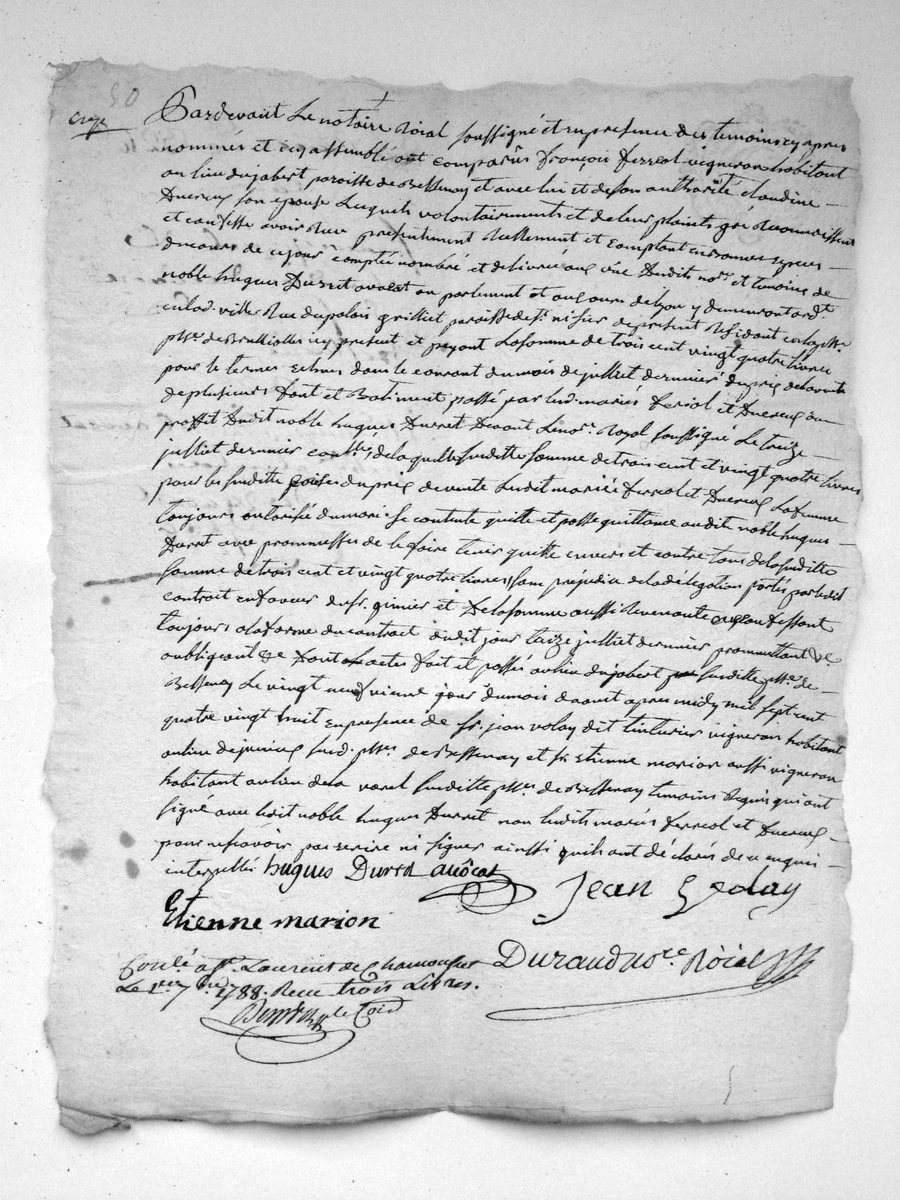 Pardevant Le notaire Roial soussigné et en presence des temoins cy apres
nommés et en assemblé ont comparûs françois ferreol vigneron habitant
au lieu du jabert paroisse de Bessenay et avec lui et de son authorité claudine
Ducreux son epouse Lesquels volontairements et de leur plaints gré Reconnoissent
et confesse avoir Reçu presentement Reellement et comptant en sommes
du cours de ce jour compté nombré et delivrée aux vüe Dudit nore et temoins de
noble hugues Durret avocat en parlement et aux cours de Lyon y demeurant ordt
en lad. ville Rue du palais grilliet paroisse de st nisier de present Residant en la psse
psse de Brulliolles icy present et payant La somme de trois cent vingt quatre livres
pour le termes echus dans le courant du mois de juilliet dernier du prix de la vente
de plusieurs font et Batiment passé par lesd. mariés feriol et Ducreux au
proffit Dudit noble hugues Durret Devant Le nore Royal soussigné Le treize
juilliet dernier de la quelle susditte somme de trois cent et vingt quatre livres
pour les susditte du prix de vente Lesdit mariés ferreol et Ducreux La femme
toujours autorisée du mari se contente quitte et passe quittance audit noble hugues
Durret avec prommesses de le faire tenir quitte envers et contre tous de la susditte
somme de trois cent et vingt quatre livres sans prejudice de la délégation portés par ledit
contrait en faveur du sr. ginier et De la somme aussi Revenante aux confessant
toujours a la forme du contract dudit jour treize juilliet dernier prommettant &c
oubligeant &c Dont actes fait et passés au lieu du jobert susditte psse de
Bessenay Le vingt neufvieme jour du mois d'aoust apres midy mil sept cent
quatre vingt huit en presence de sr. jean volay dit tinturier vigneron habitant
au lieu de susd. psse de Bessenay et sr. Etienne marion aussi vigneron
habitant au lieu de la varel susditte psse de Bessenay temoins Requis qui ont
signé avec ledit noble hugues Durret non lesdits mariés ferreol et Ducreux
pour ne sçavoir pas ecrire ni signer ainssi quils ont déclarés de ce enquis
interpellés hugues Durret avôcat
Jean Volay
Etienne marion
Conlé a St. Laurent de Chamousset
Le 1er 7bre 1788. Recu trois Livres.
Durand nore Röial